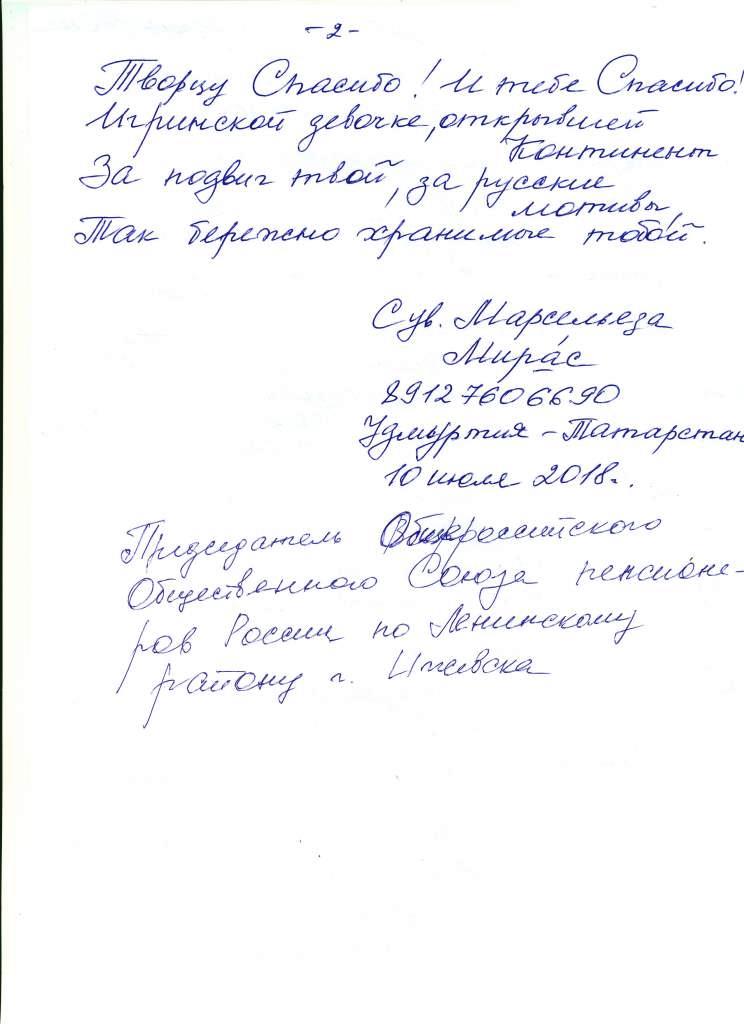 - 2 -
Творцу Спасибо! И тебе Спасибо!
Игринской девочке, открывшей
Континент
За подвиг твой, за русские
мотивы,
Так бережно хранимые тобой.
С ув. Марсельеза
Мирас
89127606690
Удмуртия - Татарстан
10 июля 2018г.
Председатель Общероссийского
Общественного Союза пенсионе-
ров России по Ленинскому
району г. Ижевска